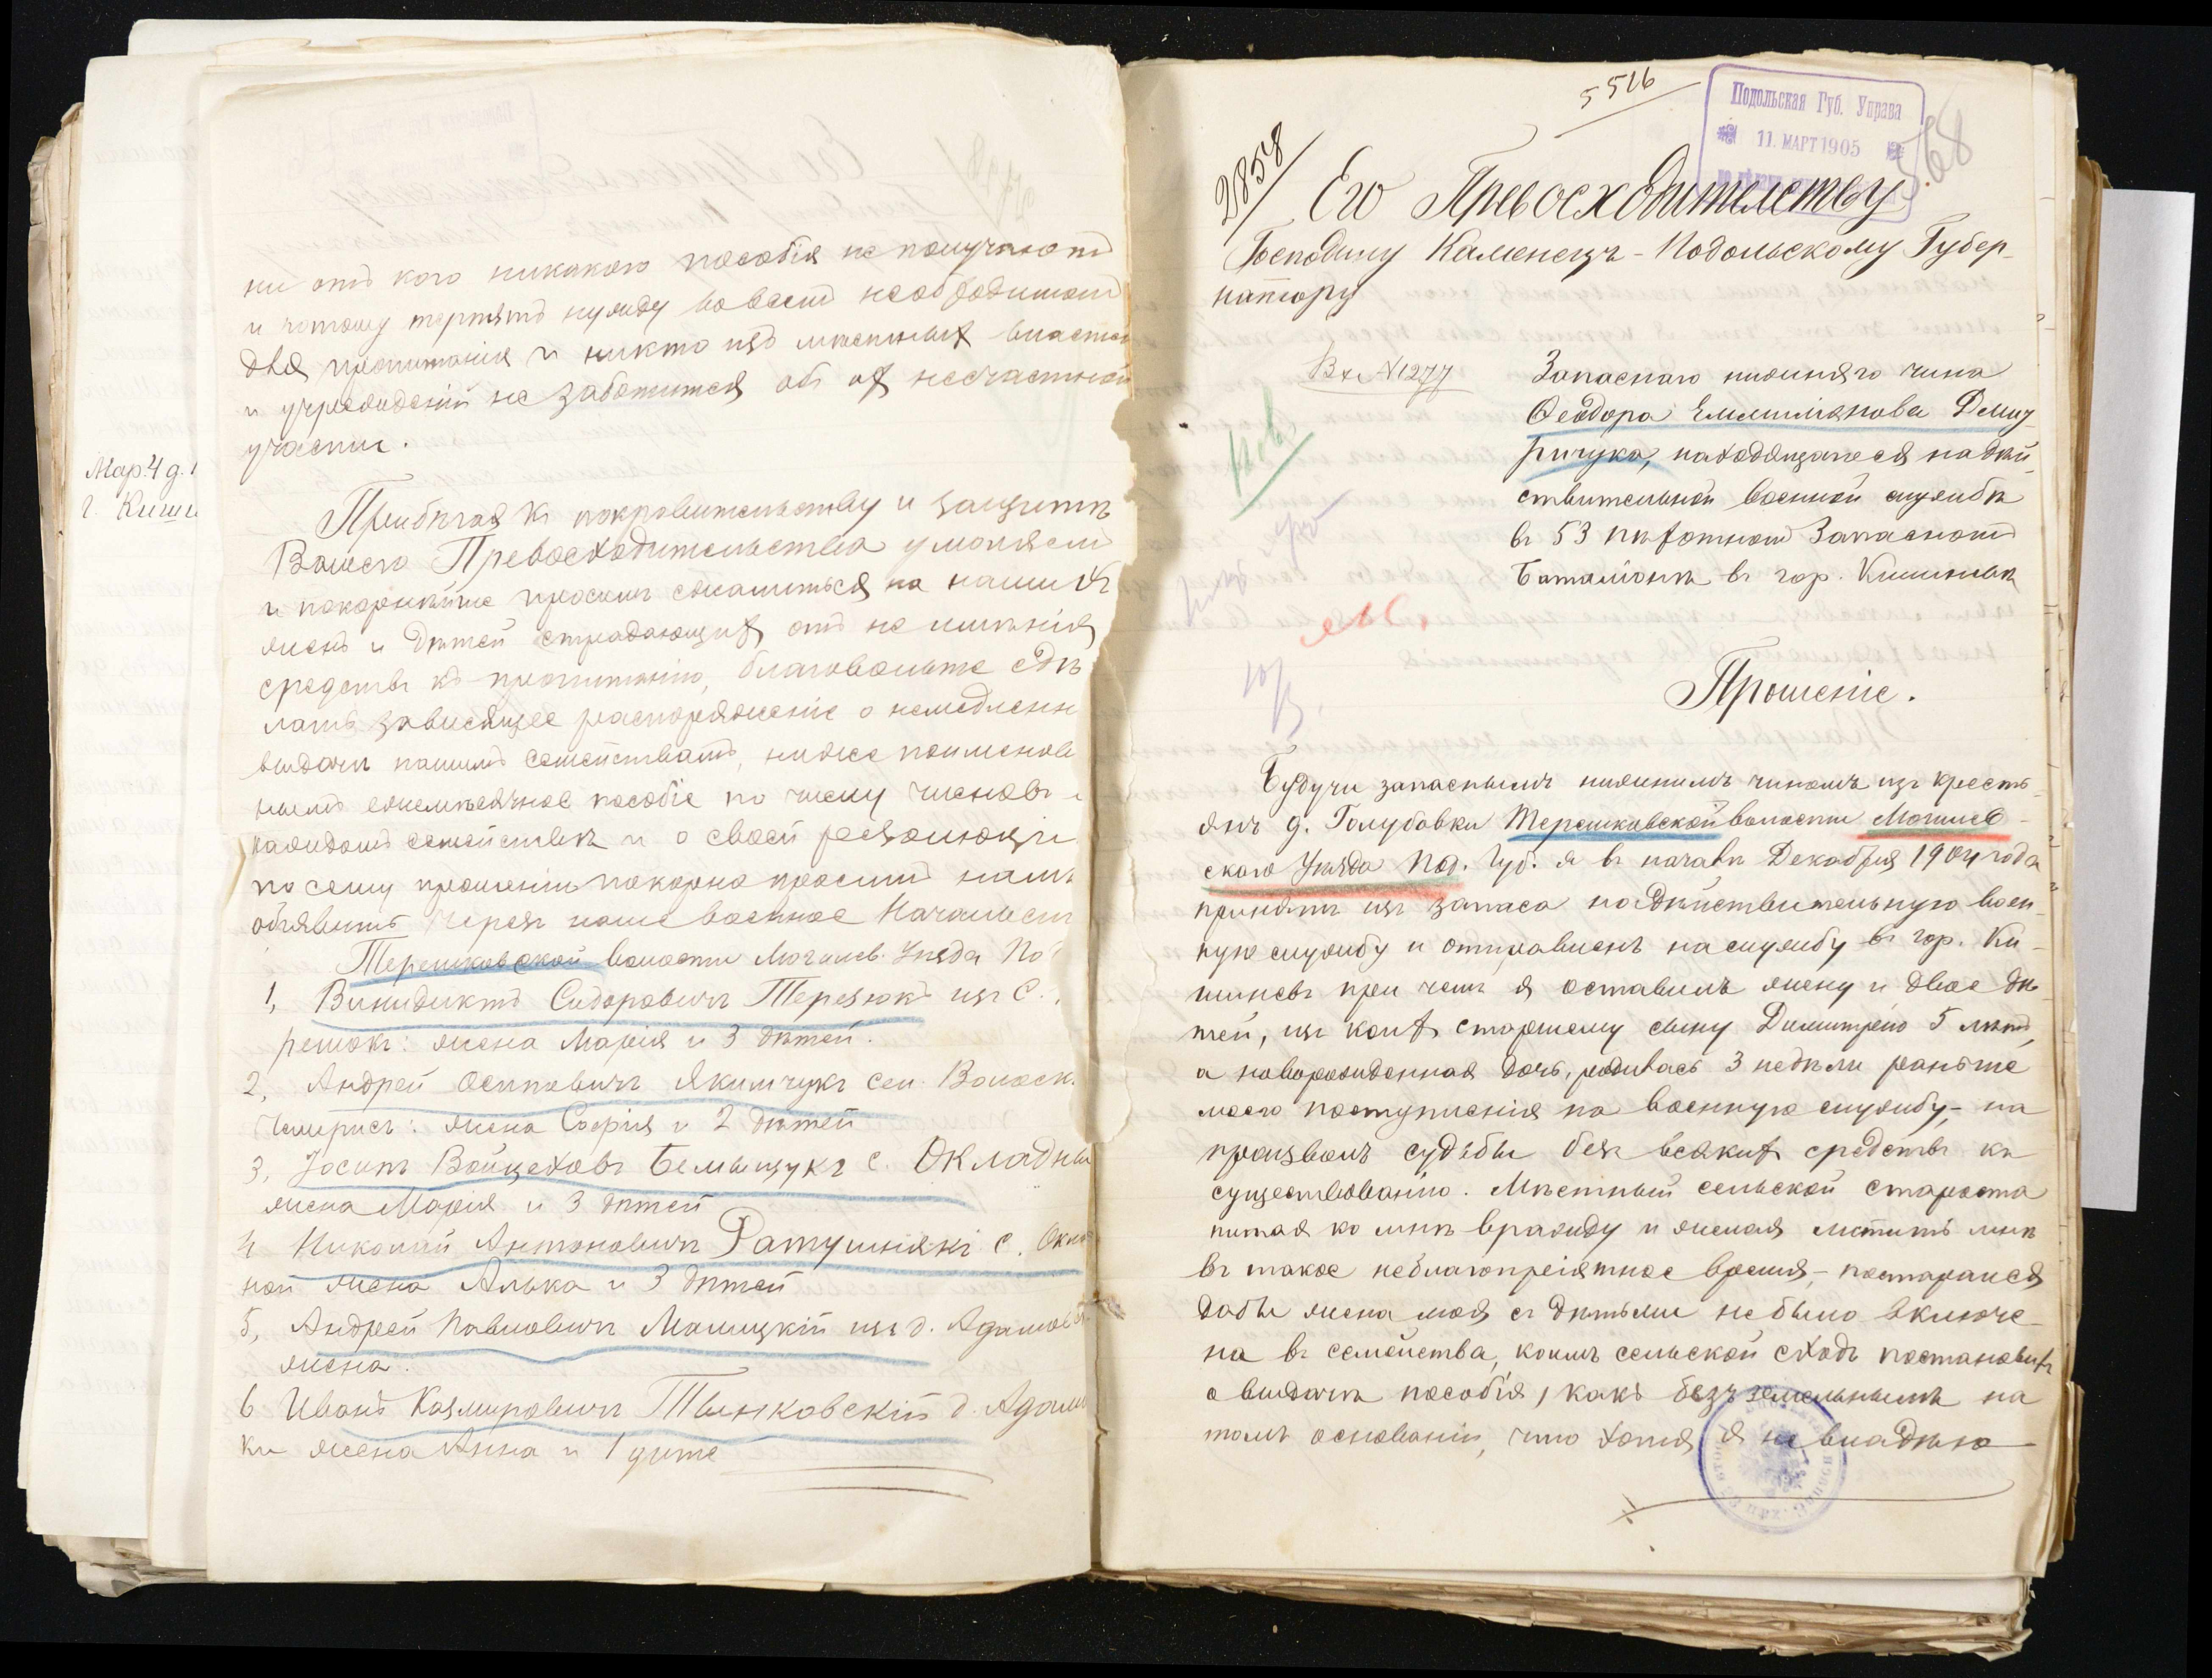 Мар. 4 д. 1
г. Киши
ни отъ кого никакого пособія не получаютъ
и потому терпятъ нужду во всемъ необходимомъ
для пропитанія и никто изъ мѣстныхъ властей
и учрежденій не заботится объ их несчастной
участи.
Прибѣгая къ покровительству и защитѣ
Вашего Превосходительства умоляемъ
и покорнѣйше просимъ сжалиться на нашихъ
женъ и дѣтей страдающихъ отъ не имѣнія
средствъ къ пропитанію, благовольте сдѣ
лать зависящее распоряженіе о немедленн
выдачи нашимъ семействамъ, ниже поименова
нымъ ежемѣсячное пособіе по числу членовъ
каждомъ семействѣ и о своей резолюціи
по сему прошенію покорно просимъ намъ
объявить чрезъ наше военное Начальст
Терешковской волости Могилев. Уѣзда По
1, Винидиктъ Сидоровичъ Терезюкъ изъ С.
решокъ: жена Марія и 3 дѣтей.
2, Андрей Осиповичъ Якимчукъ сел. Волоск.
Чемрисъ: жена Софія и 2 дѣтей
3, Іосипъ Войцеховъ Белыщукъ с. Окладны
жена Марія и 3 дѣтей
4 Николай Антоновичъ Ратушнякъ с. Окла
ной жена Алька и 3 дѣтей
5, Андрей Павловичъ Малицкій изъ д. Адамов
жена.
6 Иванъ Казмировичъ Тынковскій д. Адам
ки жена Анна и 1 дите
5516
Подольская Губ. Управа
11. МАРТ 1905
568
2858
Его Превосходителству
Господину Каменецъ-Подольскому Губер-
натору
Вх № 1277
Запаснаго нижняго чина
Ѳеодора Емилиянова Дмит-
ричука, находящагося на дѣй-
ствительной военной службѣ
въ 53 пѣхотномъ Запасномъ
Баталіонѣ въ гор. Кишиневѣ
Прошеніе.
Будучи запаснымъ нижнимъ чиномъ изъ кресть-
янъ д. Голубовки Терешковской волости Могилев-
ского Уѣзда Под. Губ. я въ началѣ Декабря 1904 года
принятъ изъ запаса на дѣйствительную воен-
ную службу и отправленъ на службу въ гор. Ки-
шиневъ при чемъ я оставилъ жену и двое дѣ-
тей, изъ коихъ старшему сыну Димитрею 5 лѣтъ,
а новорожденная дочь, родилась 3 недѣли раньше
моего поступленія на военную службу,- на
произволъ судьбы безъ всякихъ средствъ къ
существованію. Мѣстный сельской староста
питая ко мнѣ вражду и желая мстить мнѣ
въ такое неблагопреіятное время,- постарался
дабы жена моя съ дѣтьми не было включе-
на въ семейства, коимъ сельской сходъ постановилъ
о выдачѣ пособія, какъ безъземельнымъ на
томъ основаніи, что хотя я не владѣю